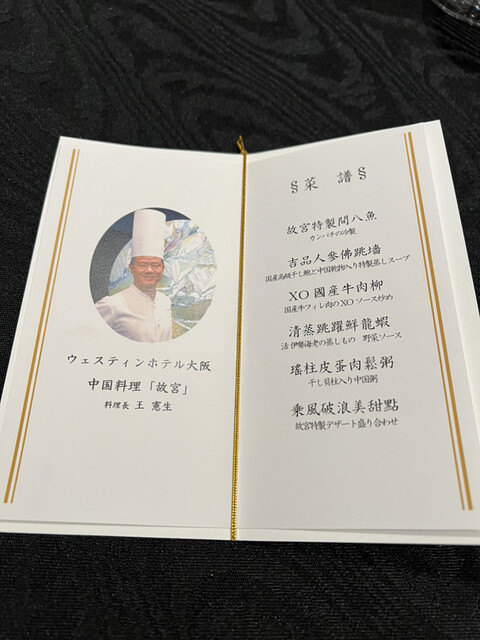 ウェスティンホテル大阪
中国料理「故宮」
料理長 王 憲生
§菜 譜§
故宮特製間八魚
カンパチの冷製
吉品人參佛跳墻
国産高級干し鮑と中国乾物入り特製蒸しスープ
XO國產牛肉柳
国産牛フィレ肉のXOソース炒め
清蒸跳躍鮮龍蝦
活伊勢海老の蒸しもの 野菜ソース
瑤柱皮蛋肉鬆粥
干し貝柱入り中国粥
乘風破浪美甜點
故宮特製デザート盛り合わせ